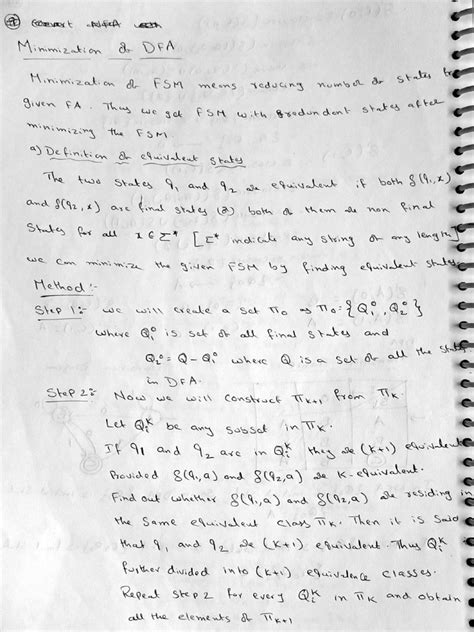 Minimization of DFA
Minimization of FSM means reducing number of states from
given FA. Thus we get FSM with redundant states after
minimizing the FSM
a) Definition of equivalent states
The two states q1 and q2 are equivalent if both δ(q1,x)
and δ(q2,x) are final states (or) both of them are non final
States for all x∈Σ* [Σ* indicate any string of any length]
we can minimize the given FSM by finding equivalent states
Method :-
Step 1:- we will create a set π0 as π0:{Q1⁰, Q2⁰}
where Q1⁰ is set of all final states and
Q2⁰ = Q - Q1⁰ where Q is a set of all the states
in DFA.
Step 2:- Now we will construct πK+1 from πK.
Let QiK be any subset in πK.
If q1 and q2 are in QiK they are (K+1) equivalent
Provided δ(q1,a) and δ(q2,a) are K-equivalent.
Find out whether δ(q1,a) and δ(q2,a) are residing in
the same equivalent class πK. Then it is said
that q1 and q2 are (K+1) equivalent. Thus QiK
further divided into (K+1) equivalence classes.
Repeat step 2 for every QiK in πK and obtain
all the elements of πK+1